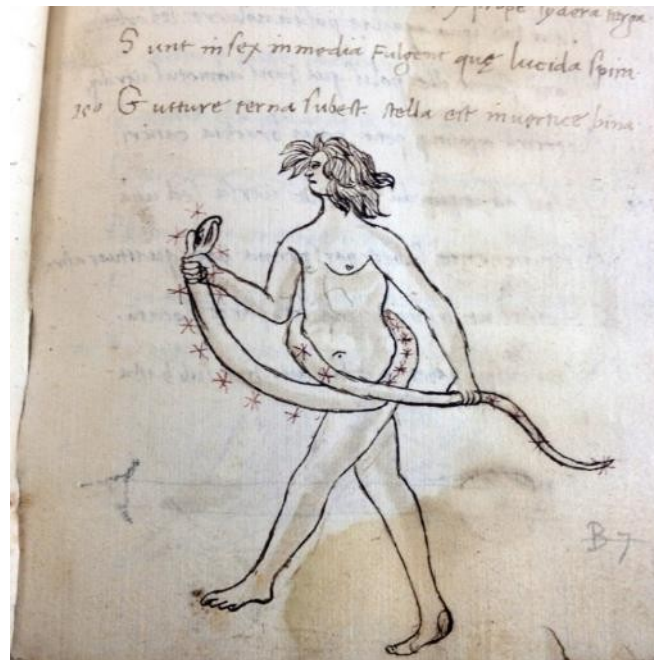 prope sydera terga
Sunt in sex in media fulgent quę lucida spira
Gutture terna subest. stella est in vertice bina
B 7